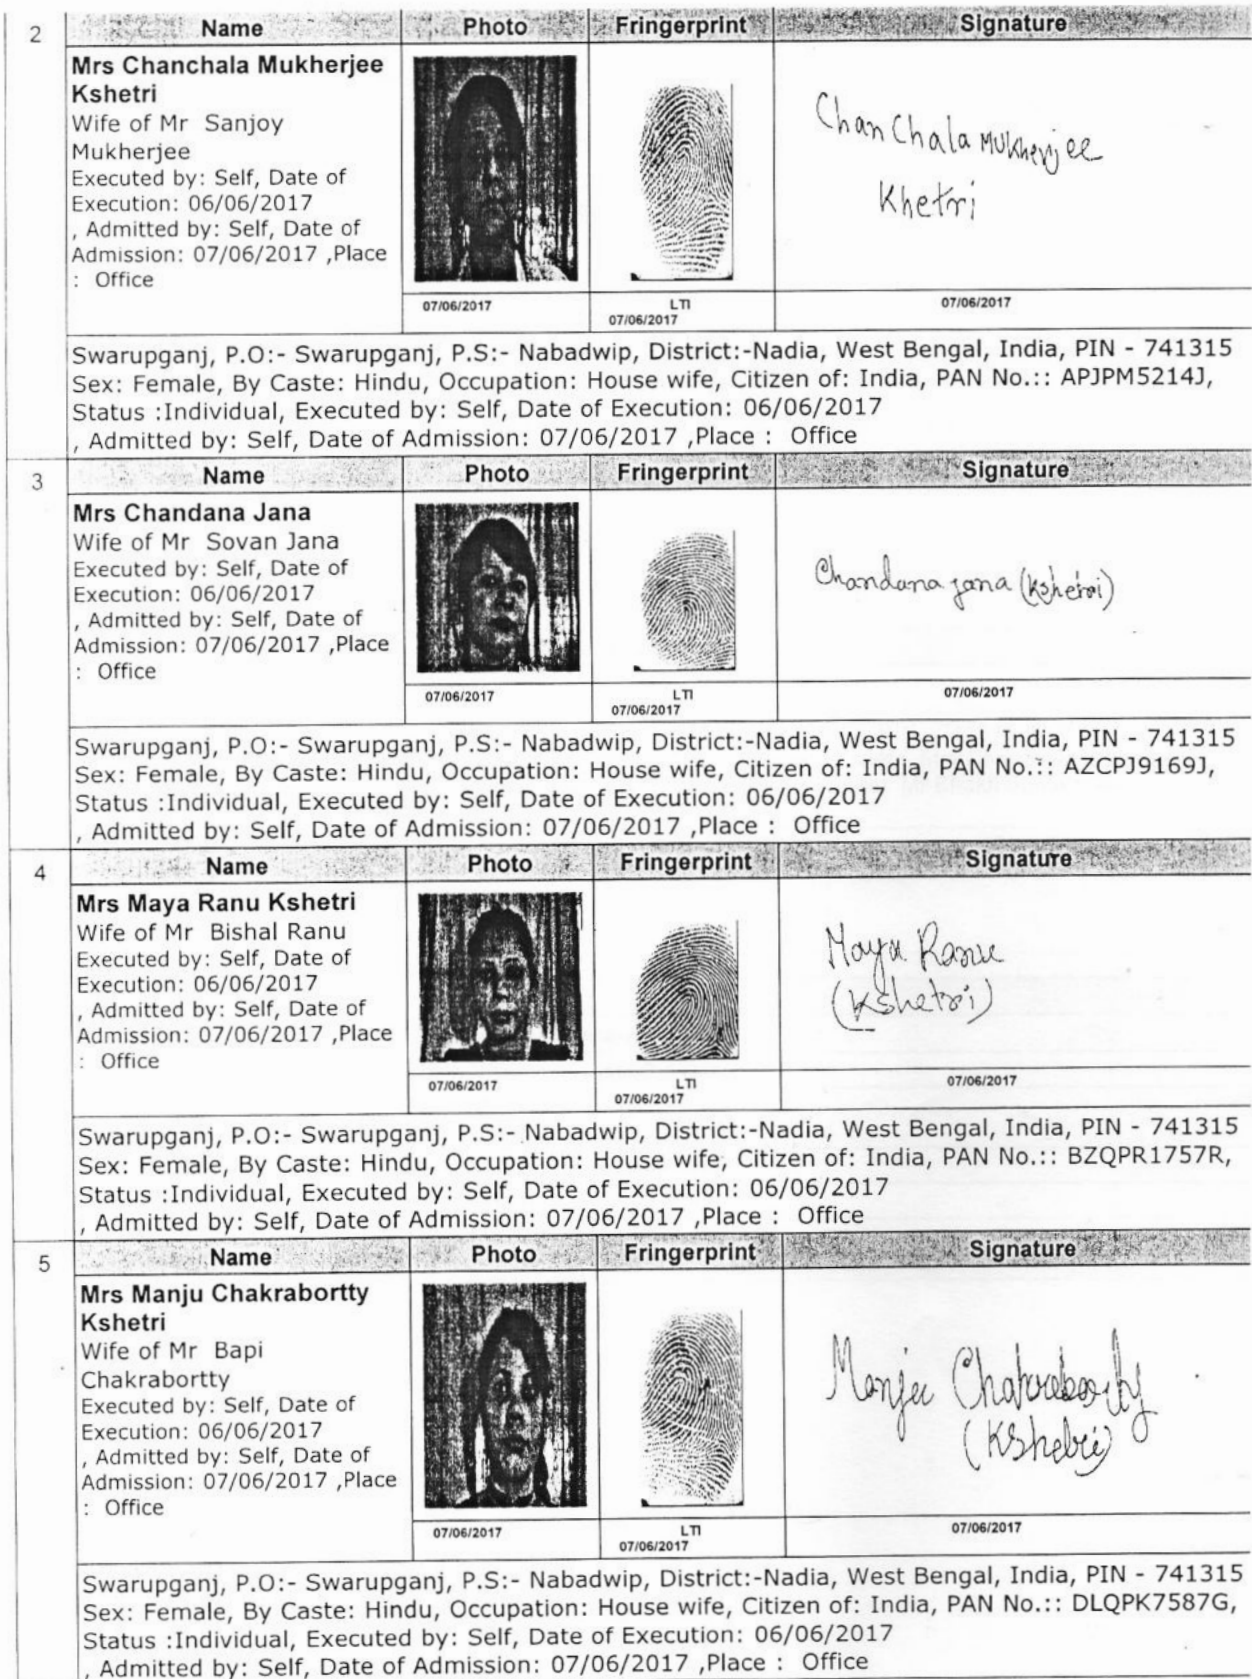 2 Name Photo Fringerprint Signature
Mrs Chanchala Mukherjee
Kshetri
Wife of Mr Sanjoy
Mukherjee
Executed by: Self, Date of
Execution: 06/06/2017
, Admitted by: Self, Date of
Admission: 07/06/2017 ,Place
: Office
ChanChala Mukherjee
Khetri
07/06/2017 LTI 07/06/2017
07/06/2017
Swarupganj, P.O:- Swarupganj, P.S:- Nabadwip, District:-Nadia, West Bengal, India, PIN - 741315
Sex: Female, By Caste: Hindu, Occupation: House wife, Citizen of: India, PAN No.:: APJPM5214J,
Status :Individual, Executed by: Self, Date of Execution: 06/06/2017
, Admitted by: Self, Date of Admission: 07/06/2017 ,Place : Office
3 Name Photo Fringerprint Signature
Mrs Chandana Jana
Wife of Mr Sovan Jana
Executed by: Self, Date of
Execution: 06/06/2017
, Admitted by: Self, Date of
Admission: 07/06/2017 ,Place
: Office
Chandana jana (Kshetri)
07/06/2017 LTI 07/06/2017
07/06/2017
Swarupganj, P.O:- Swarupganj, P.S:- Nabadwip, District:-Nadia, West Bengal, India, PIN - 741315
Sex: Female, By Caste: Hindu, Occupation: House wife, Citizen of: India, PAN No.:: AZCPJ9169J,
Status :Individual, Executed by: Self, Date of Execution: 06/06/2017
, Admitted by: Self, Date of Admission: 07/06/2017 ,Place : Office
4 Name Photo Fringerprint Signature
Mrs Maya Ranu Kshetri
Wife of Mr Bishal Ranu
Executed by: Self, Date of
Execution: 06/06/2017
, Admitted by: Self, Date of
Admission: 07/06/2017 ,Place
: Office
Maya Ranu
(Kshetri)
07/06/2017 LTI 07/06/2017
07/06/2017
Swarupganj, P.O:- Swarupganj, P.S:- Nabadwip, District:-Nadia, West Bengal, India, PIN - 741315
Sex: Female, By Caste: Hindu, Occupation: House wife, Citizen of: India, PAN No.:: BZQPR1757R,
Status :Individual, Executed by: Self, Date of Execution: 06/06/2017
, Admitted by: Self, Date of Admission: 07/06/2017 ,Place : Office
5 Name Photo Fringerprint Signature
Mrs Manju Chakrabortty
Kshetri
Wife of Mr Bapi
Chakrabortty
Executed by: Self, Date of
Execution: 06/06/2017
, Admitted by: Self, Date of
Admission: 07/06/2017 ,Place
: Office
Manju Chakraborty
(Kshetri)
07/06/2017 LTI 07/06/2017
07/06/2017
Swarupganj, P.O:- Swarupganj, P.S:- Nabadwip, District:-Nadia, West Bengal, India, PIN - 741315
Sex: Female, By Caste: Hindu, Occupation: House wife, Citizen of: India, PAN No.:: DLQPK7587G,
Status :Individual, Executed by: Self, Date of Execution: 06/06/2017
, Admitted by: Self, Date of Admission: 07/06/2017 ,Place : Office